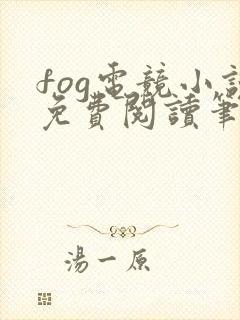 fog電競小說
免費閱讀筆
湯一原